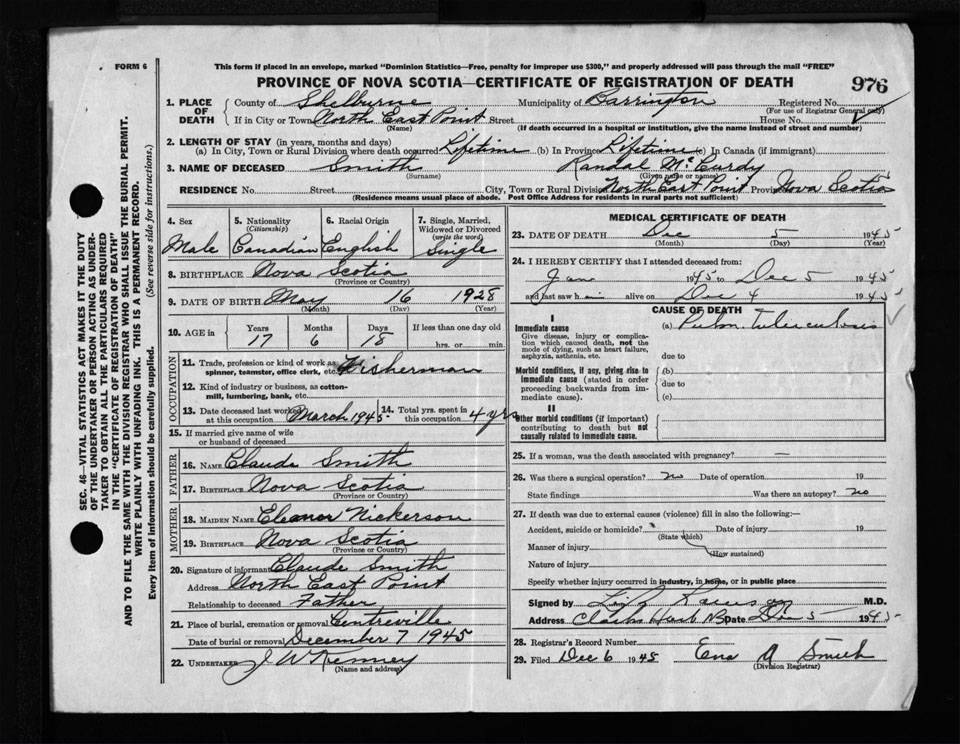 FORM 6
This form if placed in an envelope, marked "Dominion Statistics—Free, penalty for improper use $300," and properly addressed will pass through the mail "FREE"
PROVINCE OF NOVA SCOTIA—CERTIFICATE OF REGISTRATION OF DEATH
976
1. PLACE OF DEATH
County of Shelburne Municipality of Barrington Registered No.
(For use of Registrar General only)
If in City or Town North East Point Street House No.
(Name) (If death occurred in a hospital or institution, give the name instead of street and number)
2. LENGTH OF STAY (in years, months and days)
(a) In City, Town or Rural Division where death occurred Lifetime (b) In Province Lifetime (c) In Canada (if immigrant)
3. NAME OF DECEASED Smith Randal McCurdy
(Surname) (Given name or names)
RESIDENCE No. Street City, Town or Rural Division North East Point Province Nova Scotia
(Residence means usual place of abode. Post Office Address for residents in rural parts not sufficient)
SEC. 46—VITAL STATISTICS ACT MAKES IT THE DUTY
OF THE UNDERTAKER OR PERSON ACTING AS UNDER-
TAKER TO OBTAIN ALL THE PARTICULARS REQUIRED
IN THE "CERTIFICATE OF REGISTRATION OF DEATH"
AND TO FILE THE SAME WITH THE DIVISION REGISTRAR WHO SHALL ISSUE THE BURIAL PERMIT.
WRITE PLAINLY WITH UNFADING INK. THIS IS A PERMANENT RECORD.
Every item of information should be carefully supplied. (See reverse side for instructions.)
4. Sex
Male
5. Nationality
(Citizenship)
Canadian
6. Racial Origin
English
7. Single, Married, Widowed or Divorced
(write the word)
Single
8. BIRTHPLACE Nova Scotia
(Province or Country)
9. DATE OF BIRTH May 16 1928
(Month) (Day) (Year)
10. AGE in
Years Months Days If less than one day old
17 6 18 hrs. or min.
OCCUPATION
11. Trade, profession or kind of work as
spinner, teamster, office clerk, etc. Fisherman
12. Kind of industry or business, as cotton-
mill, lumbering, bank, etc.
13. Date deceased last worked
at this occupation March 1945
14. Total yrs. spent in
this occupation 4 yrs
15. If married give name of wife
or husband of deceased
FATHER
16. NAME Claude Smith
17. BIRTHPLACE Nova Scotia
(Province or Country)
MOTHER
18. MAIDEN NAME Eleanor Nickerson
19. BIRTHPLACE Nova Scotia
(Province or Country)
20. Signature of informant Claude Smith
Address North East Point
Relationship to deceased Father
21. Place of burial, cremation or removal Centreville
Date of burial or removal December 7 1945
22. UNDERTAKER J W Kenney
(Name and address)
MEDICAL CERTIFICATE OF DEATH
23. DATE OF DEATH Dec 5 1945
(Month) (Day) (Year)
24. I HEREBY CERTIFY that I attended deceased from:
Jan 1945 to Dec 5 1945
and last saw him alive on Dec 4 1945
CAUSE OF DEATH
I
Immediate cause
Give disease, injury or complica-
tion which caused death, not the
mode of dying, such as heart failure,
asphyxia, asthenia, etc.
(a) Pulm. tuberculosis
due to
Morbid conditions, if any, giving rise to
immediate cause (stated in order
proceeding backwards from im-
mediate cause).
(b)
due to
(c)
II
Other morbid conditions (if important)
contributing to death but not
causally related to immediate cause.
25. If a woman, was the death associated with pregnancy? —
26. Was there a surgical operation? no Date of operation 19
State findings Was there an autopsy? no
27. If death was due to external causes (violence) fill in also the following:—
Accident, suicide or homicide? Date of injury 19
(State which)
Manner of injury
(How sustained)
Nature of injury
Specify whether injury occurred in industry, in home, or in public place
Signed by M.D.
Address Clarks Harb NS Date Dec 5 1945
28. Registrar's Record Number
29. Filed Dec 6 1945 Ena A Smith
(Division Registrar)